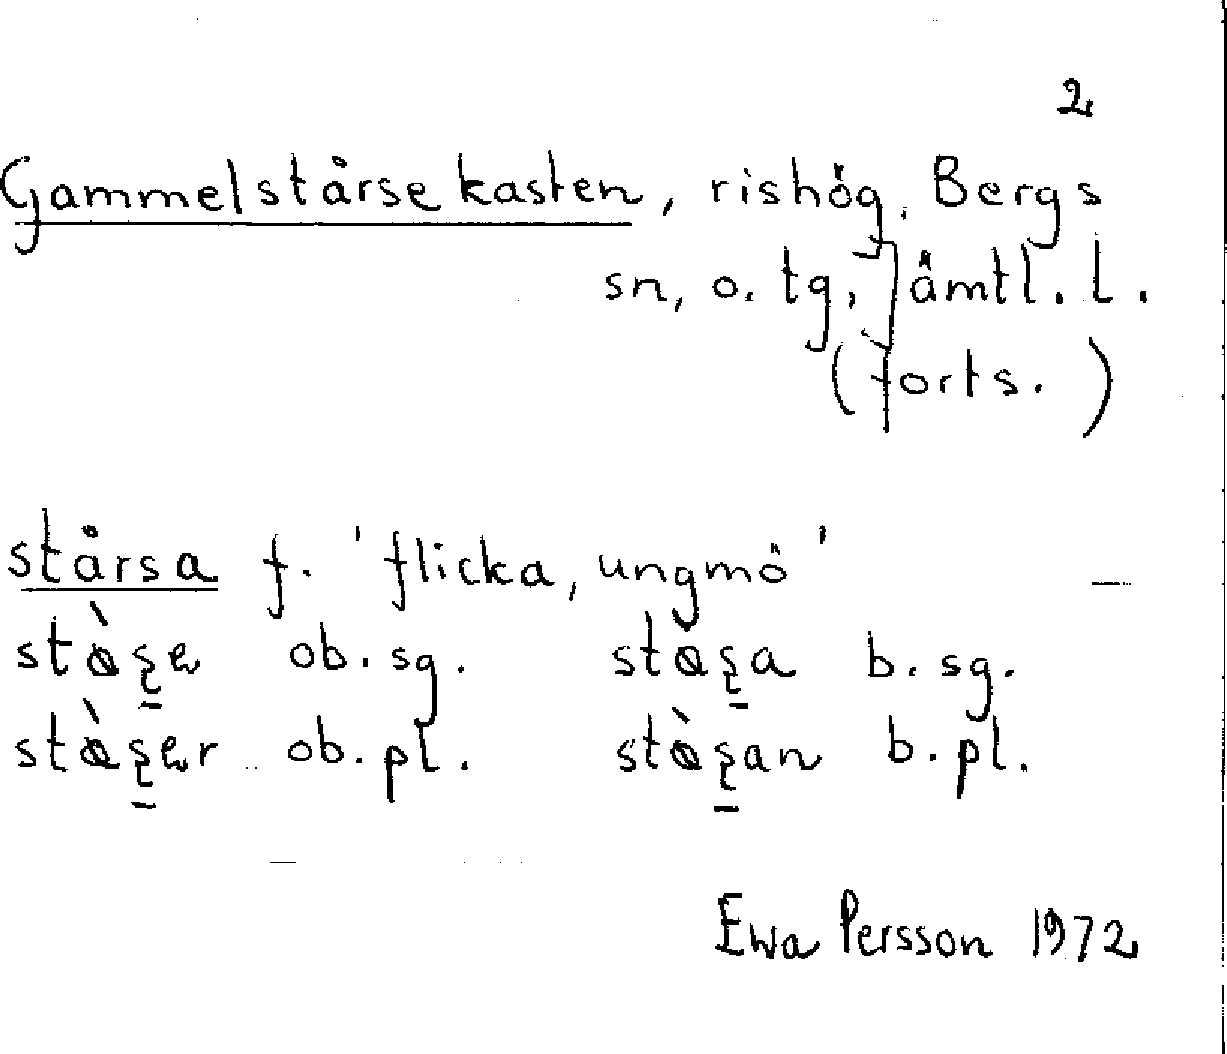 2
Gammelstårsekasten, rishög, Bergs
sn, o. tg, Jämtl. l.
(forts.)
stårsa f. 'flicka, ungmö'
ob. sg. b. sg.
ob. pl. b. pl.
Ewa Persson 1972